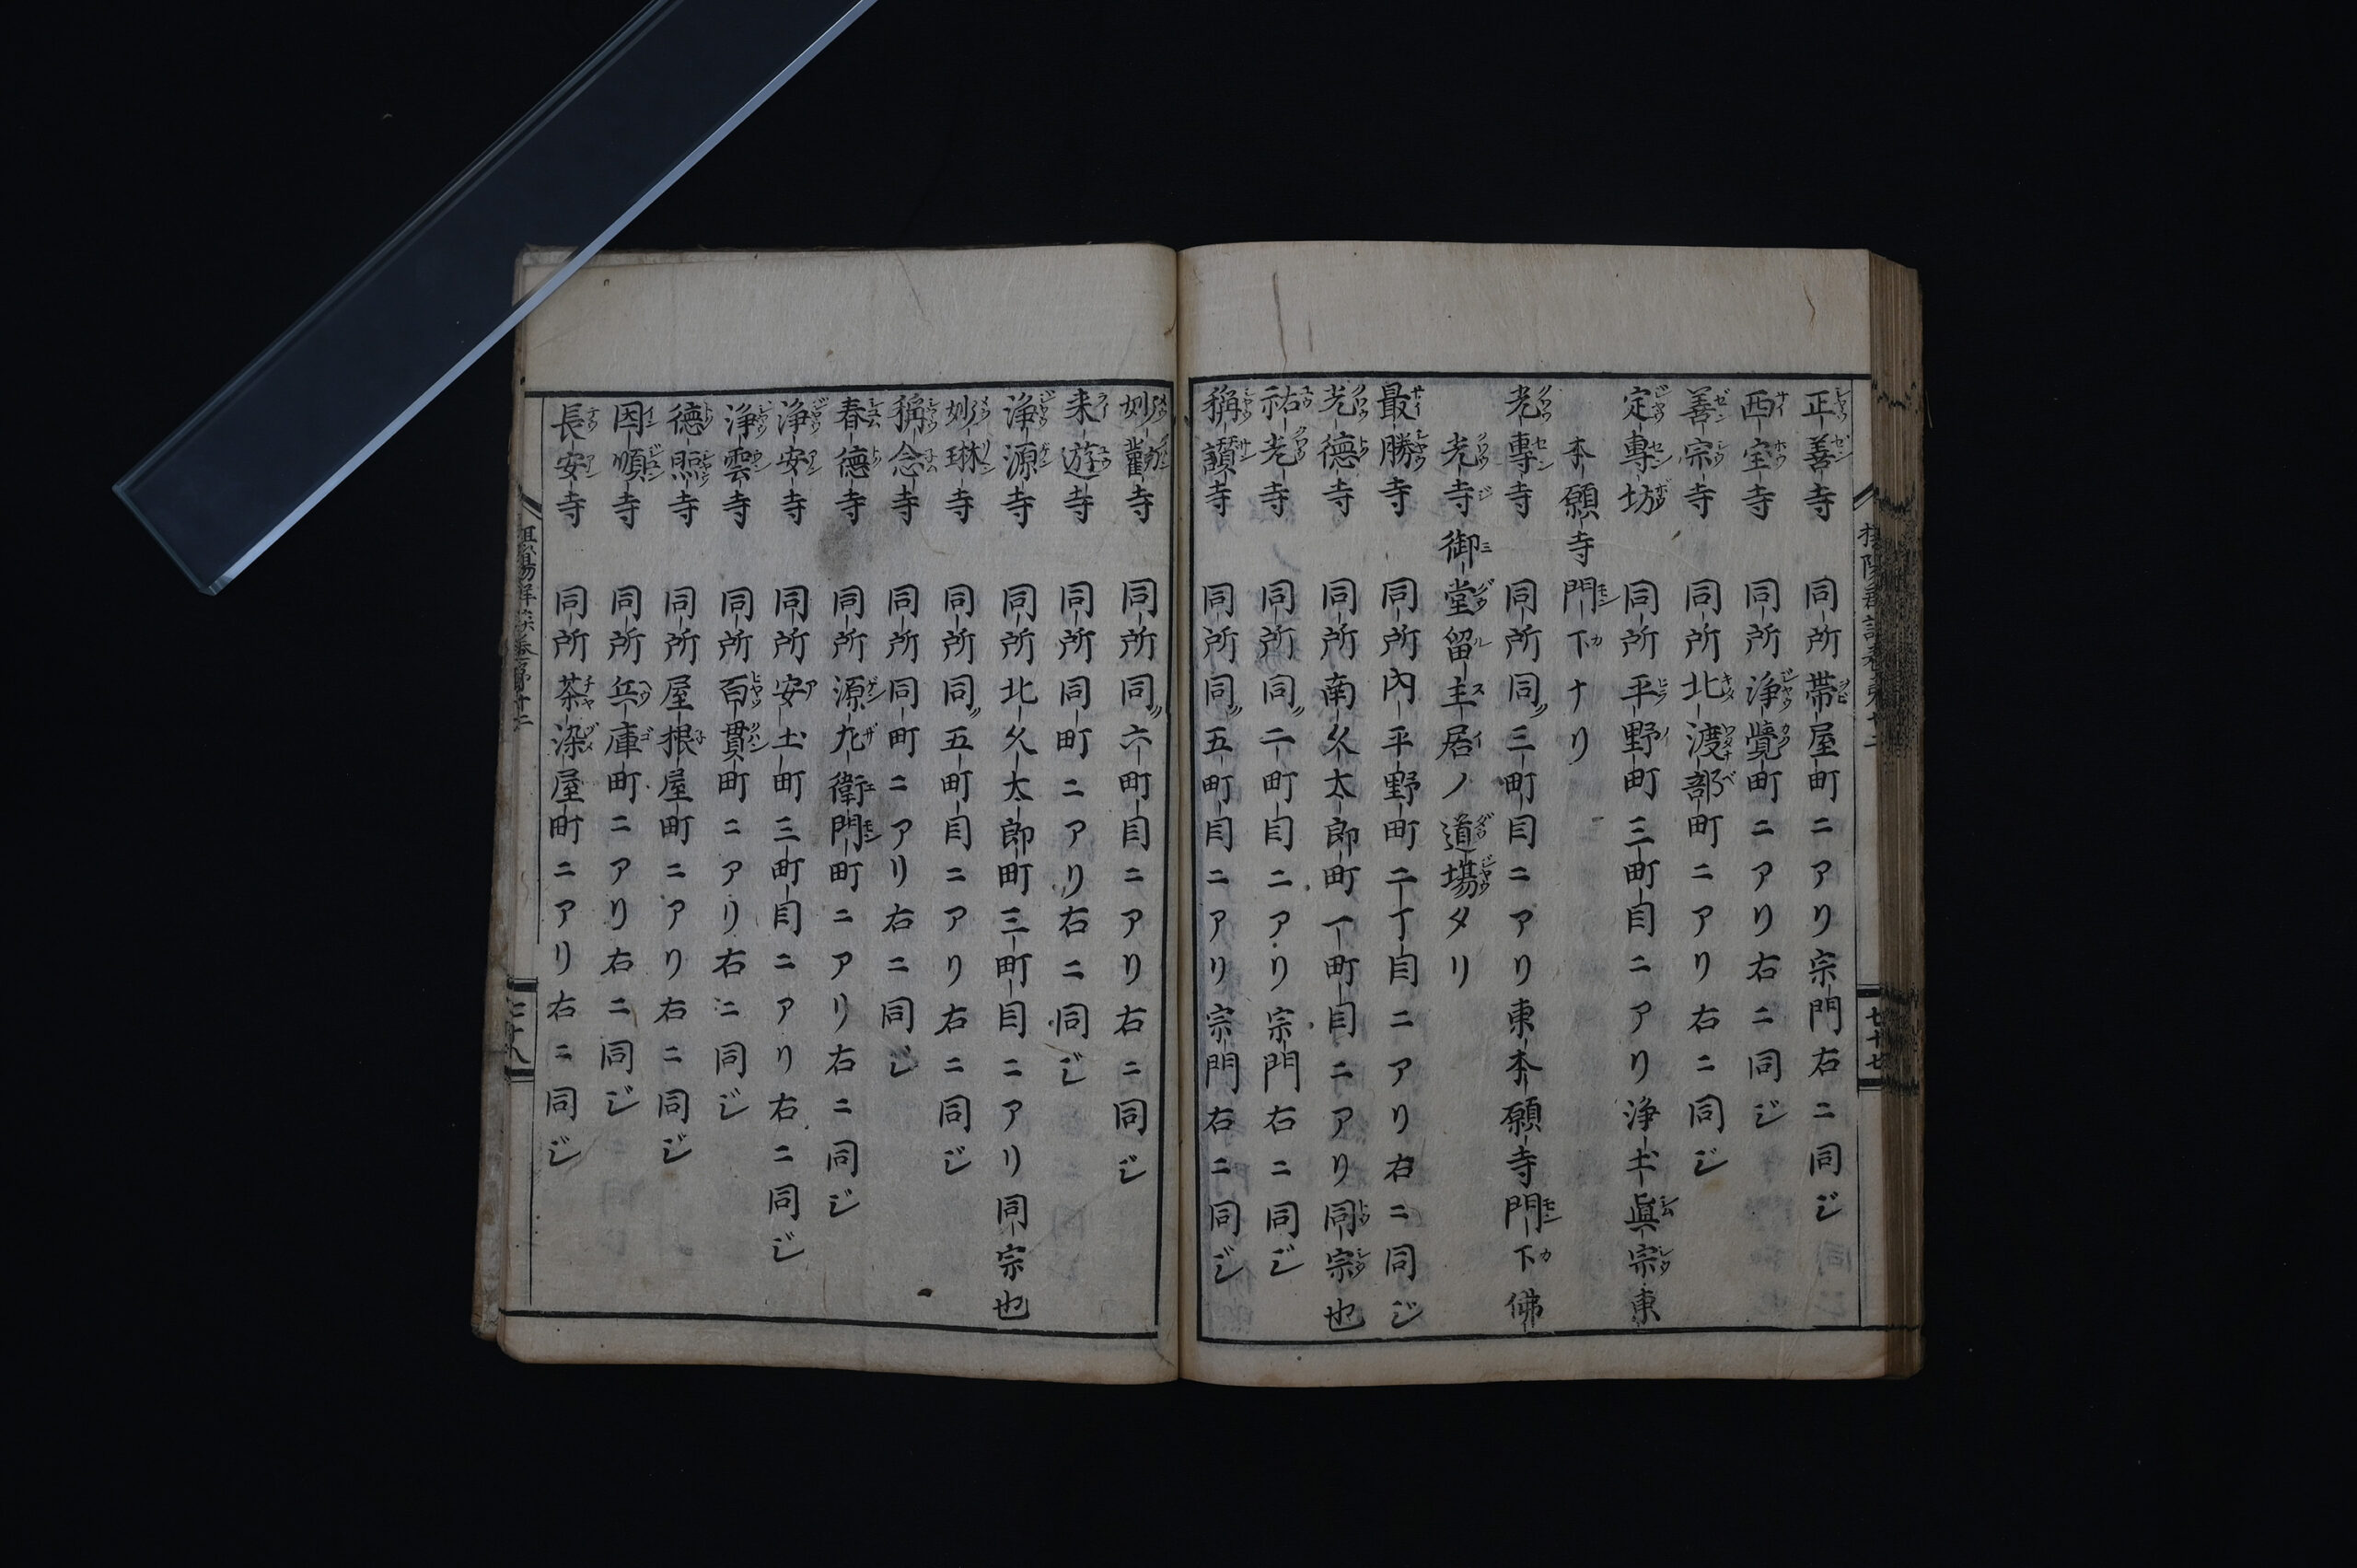 正善寺 同所帯屋町ニアリ宗門右ニ同ジ
西宝寺 同所浄覚町ニアリ右ニ同ジ
善宗寺 同所北渡部町ニアリ右ニ同ジ
定專坊 同所平野町三町目ニアリ浄土眞宗東
本願寺門下ナリ
光專寺 同所同〃三町目ニアリ東本願寺門下佛
光寺御堂留主居ノ道場タリ
最勝寺 同所内平野町二丁目ニアリ右ニ同ジ
光德寺 同所南久太郎町一町目ニアリ同宗也
祐光寺 同所同〃二町目ニアリ宗門右ニ同ジ
稱讃寺 同所同〃五町目ニアリ宗門右ニ同ジ
妙觀寺 同所同〃六町目ニアリ右ニ同ジ
来遊寺 同所同町ニアリ右ニ同ジ
浄源寺 同所北久太郎町三町目ニアリ同宗也
妙琳寺 同所同〃五町目ニアリ右ニ同ジ
稱念寺 同所同町ニアリ右ニ同ジ
春德寺 同所源九衛門町ニアリ右ニ同ジ
浄安寺 同所安土町三町目ニアリ右ニ同ジ
浄雲寺 同所百貫町ニアリ右ニ同ジ
德照寺 同所屋根屋町ニアリ右ニ同ジ
因順寺 同所兵庫町ニアリ右ニ同ジ
長安寺 同所茶染屋町ニアリ右ニ同ジ
七十七